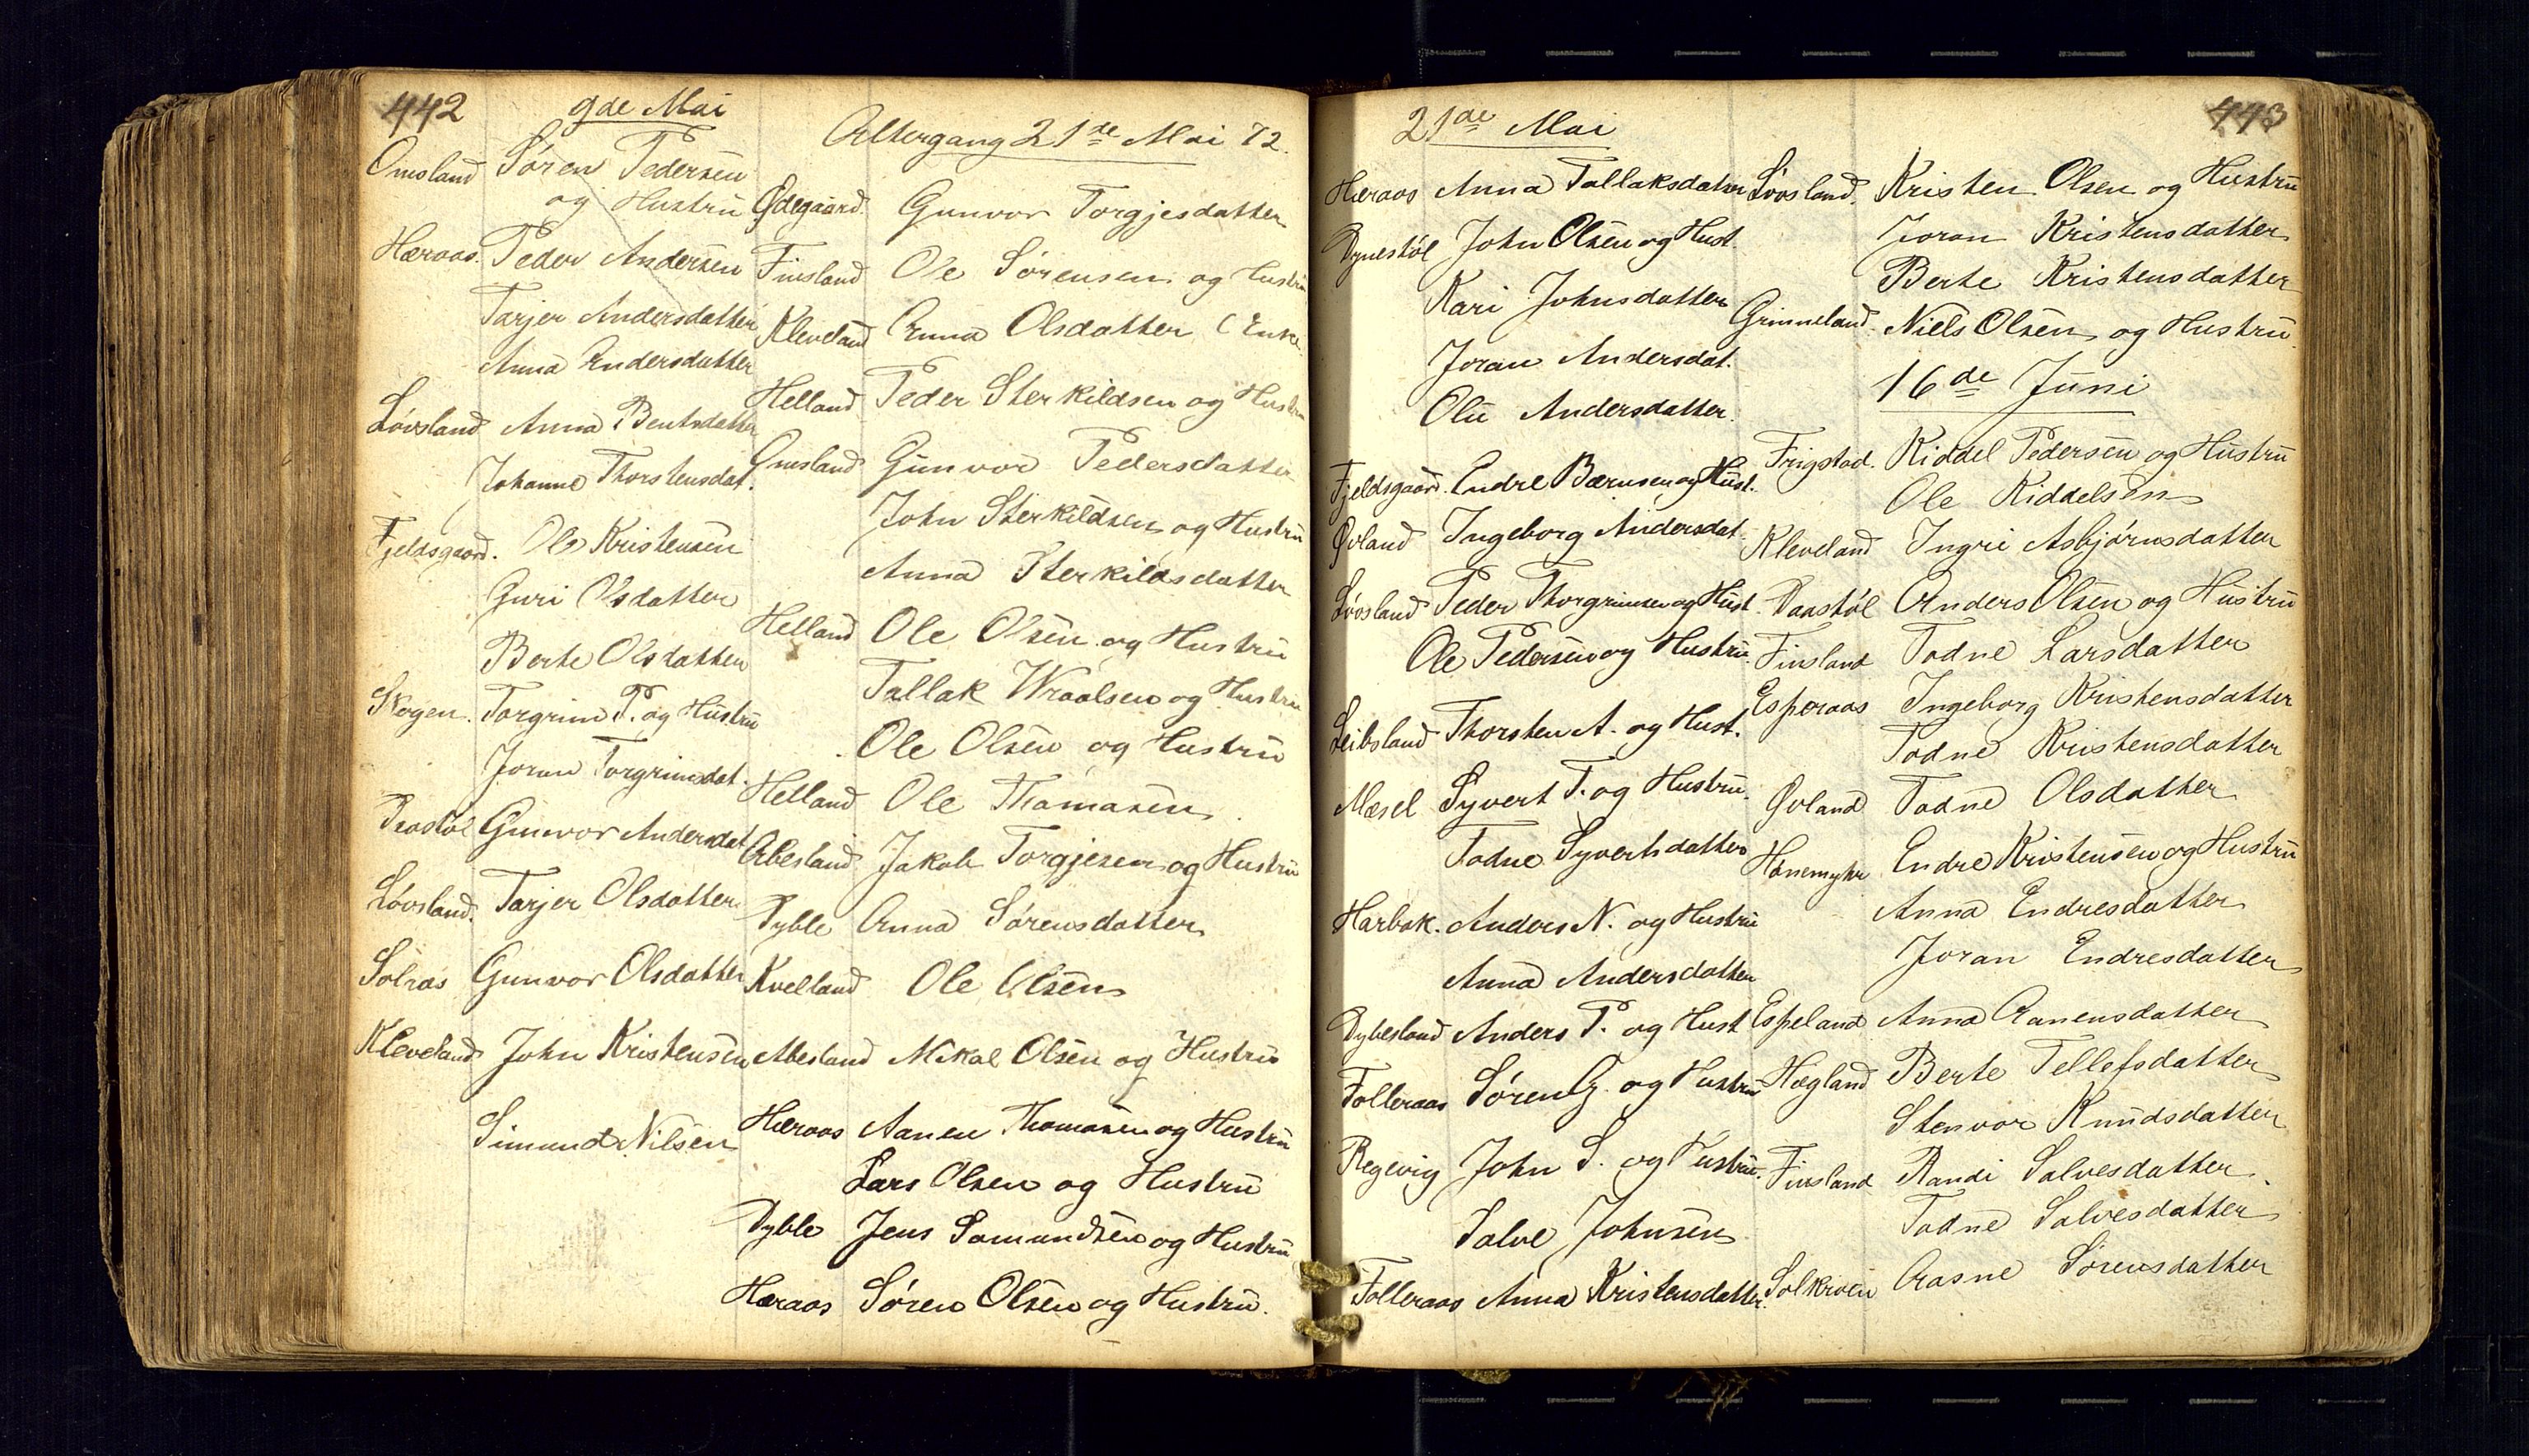 442
9de Mai
Omsland Søren Pedersen
og Hustru
Hæraas. Peder Andersen
Tarjer Andersdatter
Anna Andersdatter
Løvsland Anna Bentsdatter
Johanne Thorstensdat.
Fjeldsgaard. Ole Kristensen
Guri Olsdatter
Berte Olsdatter
Skogen. Torgrim P. og Hustru
Joran Torgrimsdat.
Gunvor Andersdat
Løvsland. Tarjer Olsdatter
Solaas Gunvor Olsdatter
Kleveland John Kristensen
Simund Nilsen
Altergang 21de Mai 72.
Ødegaard. Gunvor Torgjesdatter
Finsland Ole Sørensen og Hustru
Kleveland Anna Olsdatter (Enke
Helland Peder Sterkildsen og Hustru
Omsland Gunvor Pedersdatter
John Sterkildsen og Hustru
Anna Sterkildsdatter
Helland Ole Olsen og Hustru
Tallak Wraalsen og Hustru
Ole Olsen og Hustru
Helland Ole Thomasen.
Abesland Jakob Torgjesen og Hustru
Dyble Anna Sørensdatter
Kvelland Ole Olsen
Abesland Mikal Olsen og Hustru
Hæraas Aanen Thomasen og Hustru
Lars Olsen og Hustru
Dyble Jens Samundsen og Hustru
Hæraas Søren Olsen og Hustru.
443
21de Mai
Hæraas Anna Tallaksdatter
Dynestøl John Olsen og Hust.
Kari Johnsdatter
Joran Andersdat.
Olu Andersdatter.
Fjeldsgaard. Endre Bærnsen og Hust.
Øvland Ingeborg Andersdat.
Løvsland Peder Thorgrimsen og Hust.
Ole Pedersen og Hustru.
Leibsland Thorsten A. og Hust.
Mæsel Syvert T. og Hustru.
Todne Syvertsdatter
Harbak. Anders N. og Hustru
Anna Andersdatter
Dybesland Anders P. og Hust
Folleraas Søren G. og Hustru
Regevig John S. og Hustru.
Salve Johnsen
Folleraas Anna Kristensdatter.
Løvsland. Kristen Olsen og Hustru
Joran Kristensdatter
Berte Kristensdatter
Grimneland. Niels Olsen og Hustru.
16de Juni
Frigstad. Kiddel Pedersen og Hustru
Ole Kiddelsen
Kleveland Ingri Asbjørnsdatter
Daastøl Anders Olsen og Hustru
Finsland Todne Larsdatter
Esperaas Ingeborg Kristensdatter
Todne Kristensdatter
Øvland Todne Olsdatter
Hønemyhr Endre Kristensen og Hustru
Anna Endresdatter
Joran Endresdatter
Espeland Anna Aanensdatter
Høgland Berte Tellefsdatter
Stenvor Knudsdatter
Finsland Randi Salvesdatter
Todne Salvesdatter
Aasne Sørensdatter